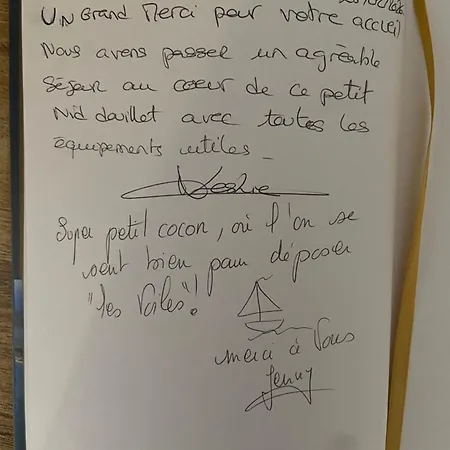 Un Grand Merci pour votre accueil
Nous avons passer un agréable
séjour au coeur de ce petit
Nid douillet avec toutes les
équipements utiles _
Super petit cocon, où l'on se
sent bien pour déposer
"les Voiles"!
merci à Vous
Jenny